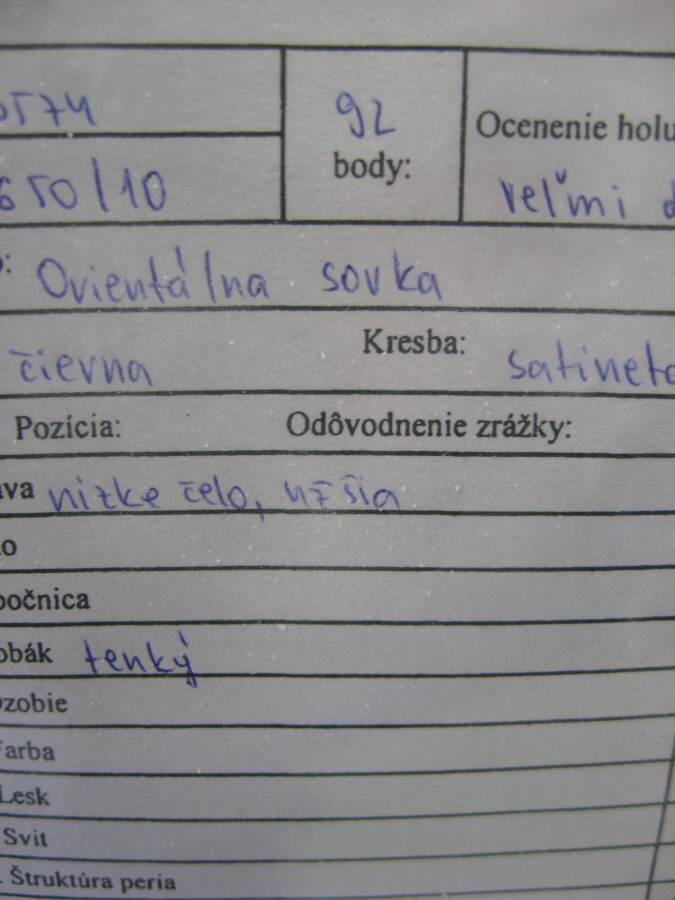 92
body:
Ocenenie holu
650/10
veľmi d
Orientálna sovka
čierna
Kresba:
satinet
Pozícia:
Odôvodnenie zrážky:
ava nízke čelo, užšia
ko
očnica
obák tenký
ozobie
Farba
Lesk
Svit
. Štruktúra peria